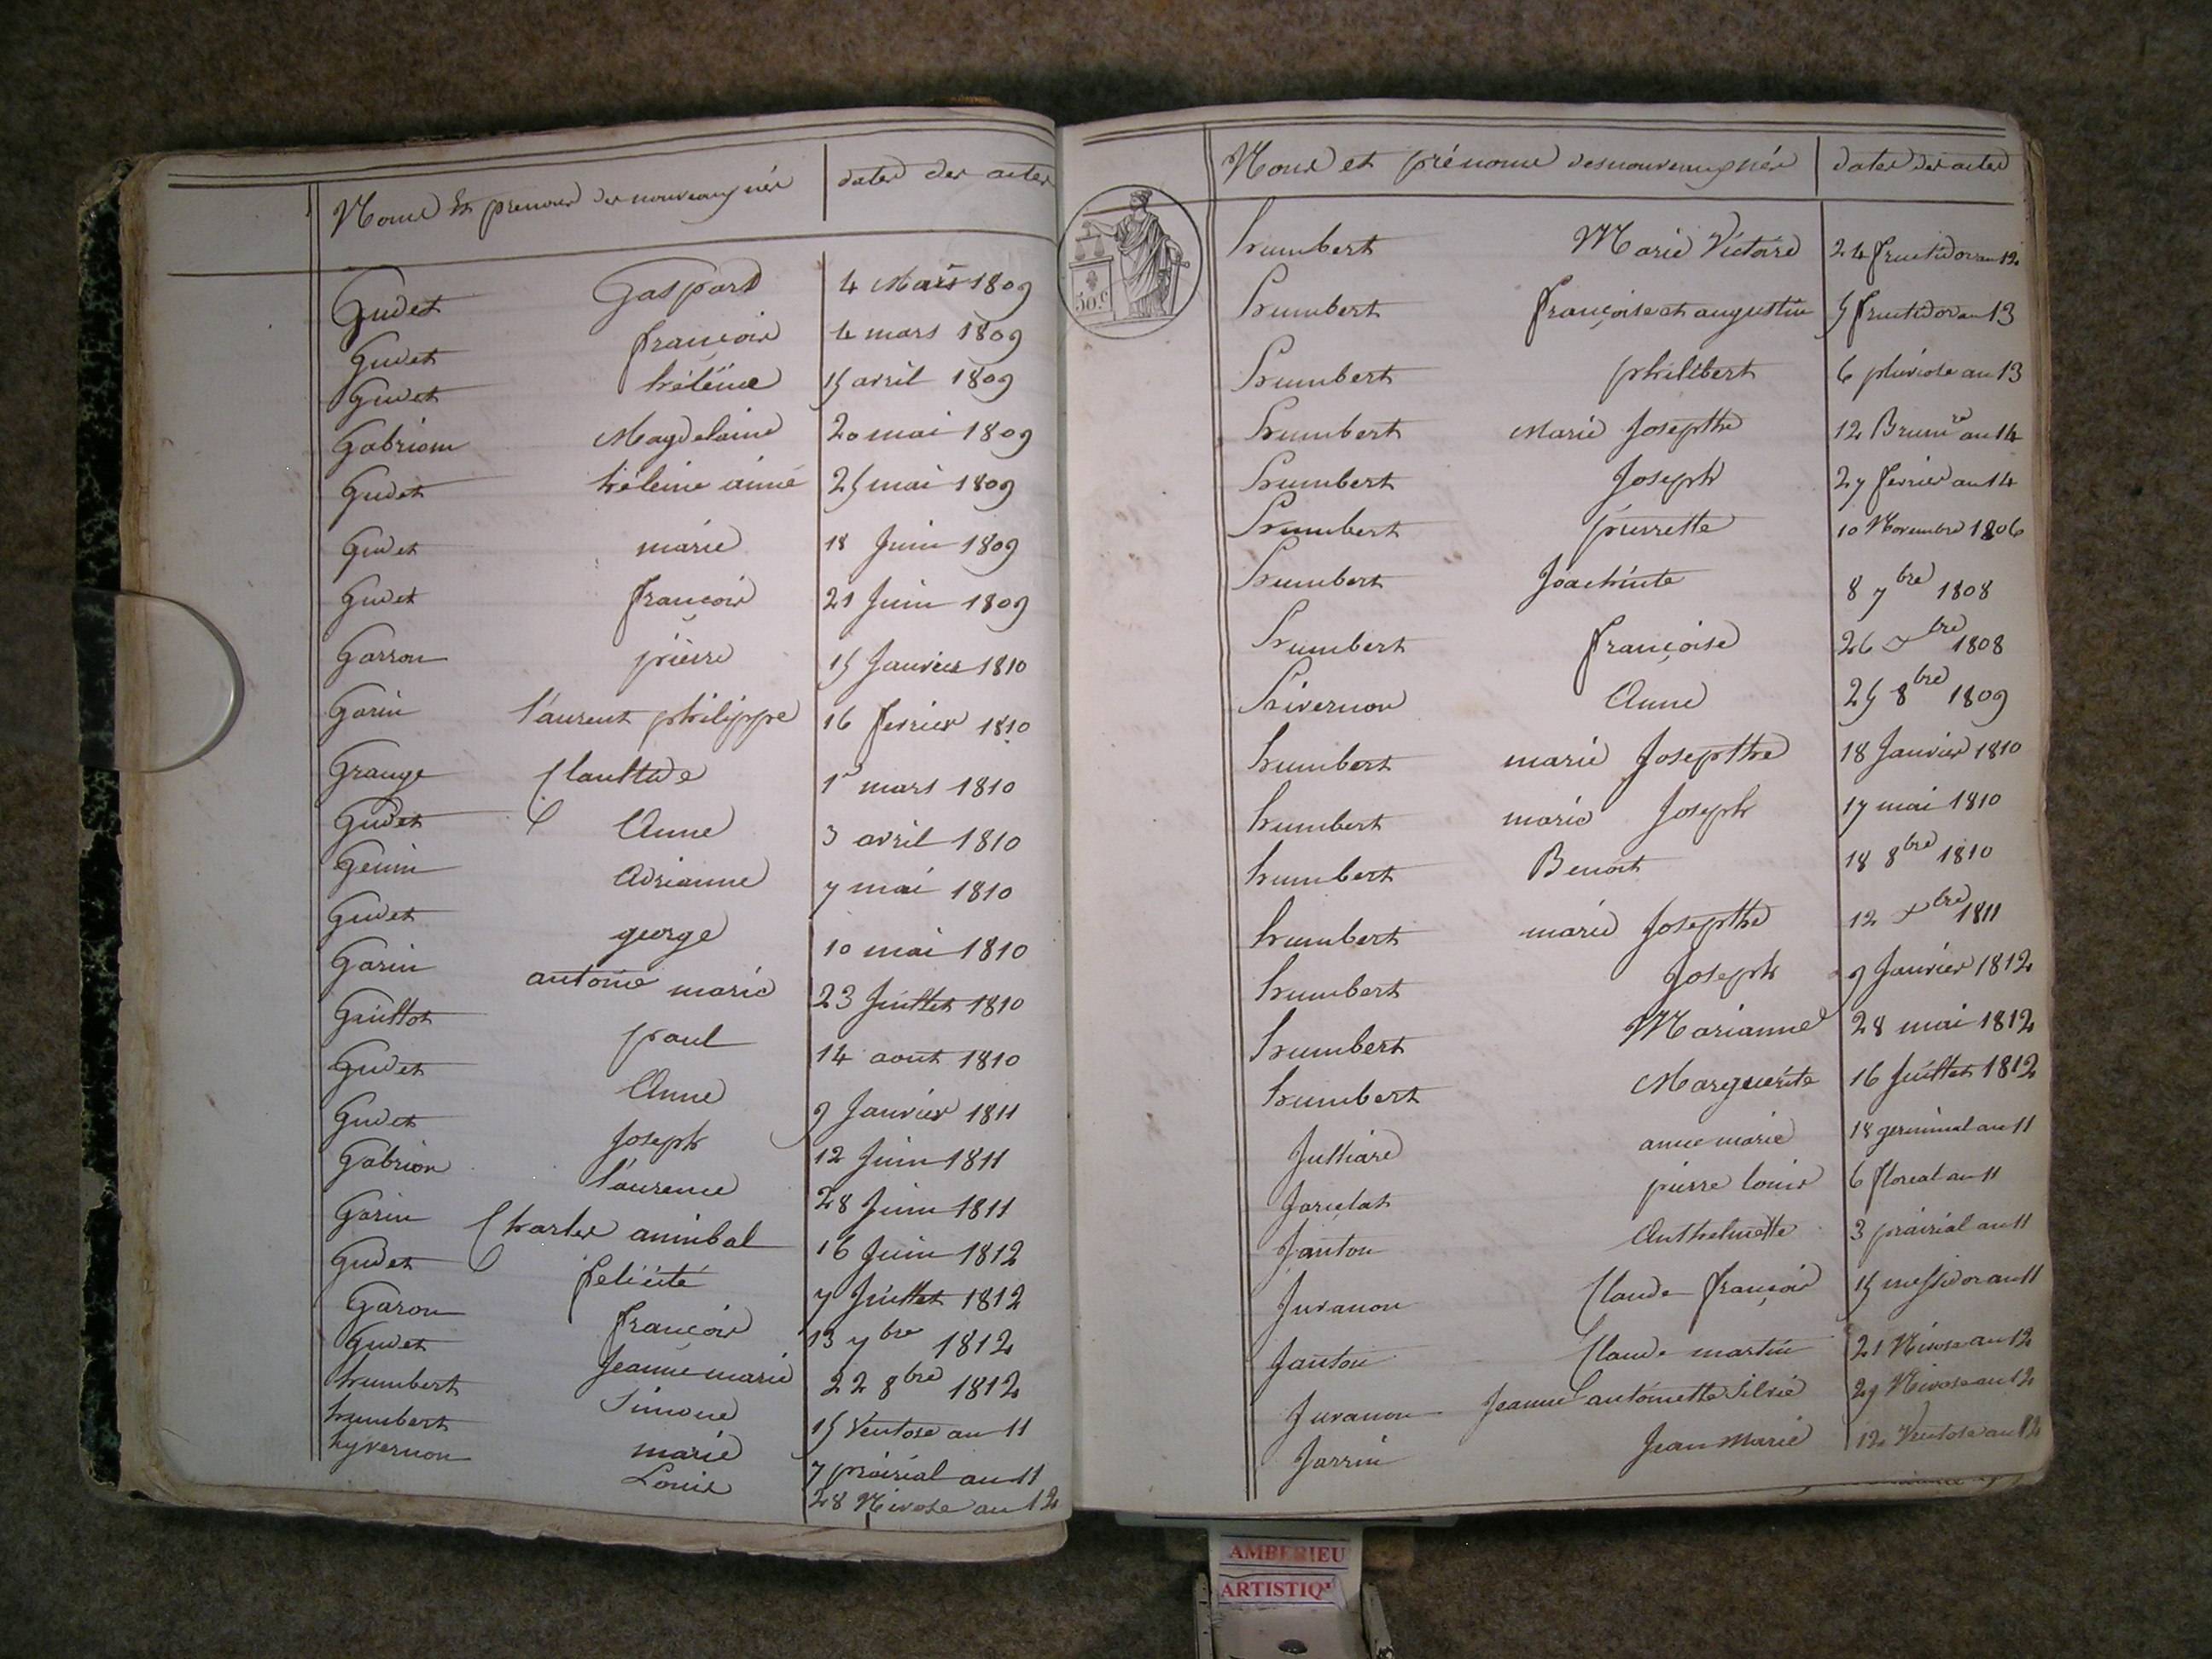 Noms et prenoms des nouveaux nés dates des actes
Gudet Gaspard 4 Mars 1809
Gudet françois 4 mars 1809
Gudet héléine 15 avril 1809
Gabrion Magdelaine 20 mai 1809
Gudet héléine aimé 25 mai 1809
Gudet marie 18 Juin 1809
Gudet françois 21 Juin 1809
Garron pierre 15 Janvier 1810
Garin laurent philippe 16 fevrier 1810
Grange Clautide 1r mars 1810
Gudet Anne 3 avril 1810
Genin Adrianne 7 mai 1810
Gudet george 10 mai 1810
Garin antoine marie 23 Juillet 1810
Guillot paul 14 aout 1810
Gudet Anne 9 Janvier 1811
Gudet Joseph 12 Juin 1811
Gabrion laurence 28 Juin 1811
Garin Charles annibal 16 Juin 1812
Gudet felicité 7 Juillet 1812
Garon françois 13 7bre 1812
Gudet Jeanne marie 22 8bre 1812
humbert Simone 15 Ventose an 11
humbert marie 7 prairial an 11
hyvernon Louis 28 Nivose an 12
Noms et prénoms des nouveaux nés dates des actes
50.c
humbert Marie Victoire 24 fructidor an 12
humbert françoise et augustin 5 fructidor an 13
humbert philibert 6 pluviose an 13
humbert Marie Josepthe 12 Brumre an 14
humbert Joseph 27 fevrier an 14
humbert pierrette 10 Novembre 1806
humbert Joachinte 8 7bre 1808
humbert françoise 26 xbre 1808
hivernon Anne 25 8bre 1809
humbert marie Josepthe 18 Janvier 1810
humbert marie Joseph 17 mai 1810
humbert Benoit 18 8bre 1810
humbert marie Josepthe 12 xbre 1811
humbert Joseph 9 Janvier 1812
humbert Marianne 28 mai 1812
humbert Marguerite 16 Juillet 1812
Julliard anne marie 18 germinal an 11
Jarielat pierre louis 6 floreal an 11
Janton Anthelmette 3 prairial an 11
Juvanon Claude françois 15 messidor an 11
Janton Claude martin 21 Nivose an 12
Juvanon Jeanne antoinette Silvie 29 Nivose an 12
Jarrin Jean Marie 12 Ventose an 12
AMBERIEU
ARTISTIQ